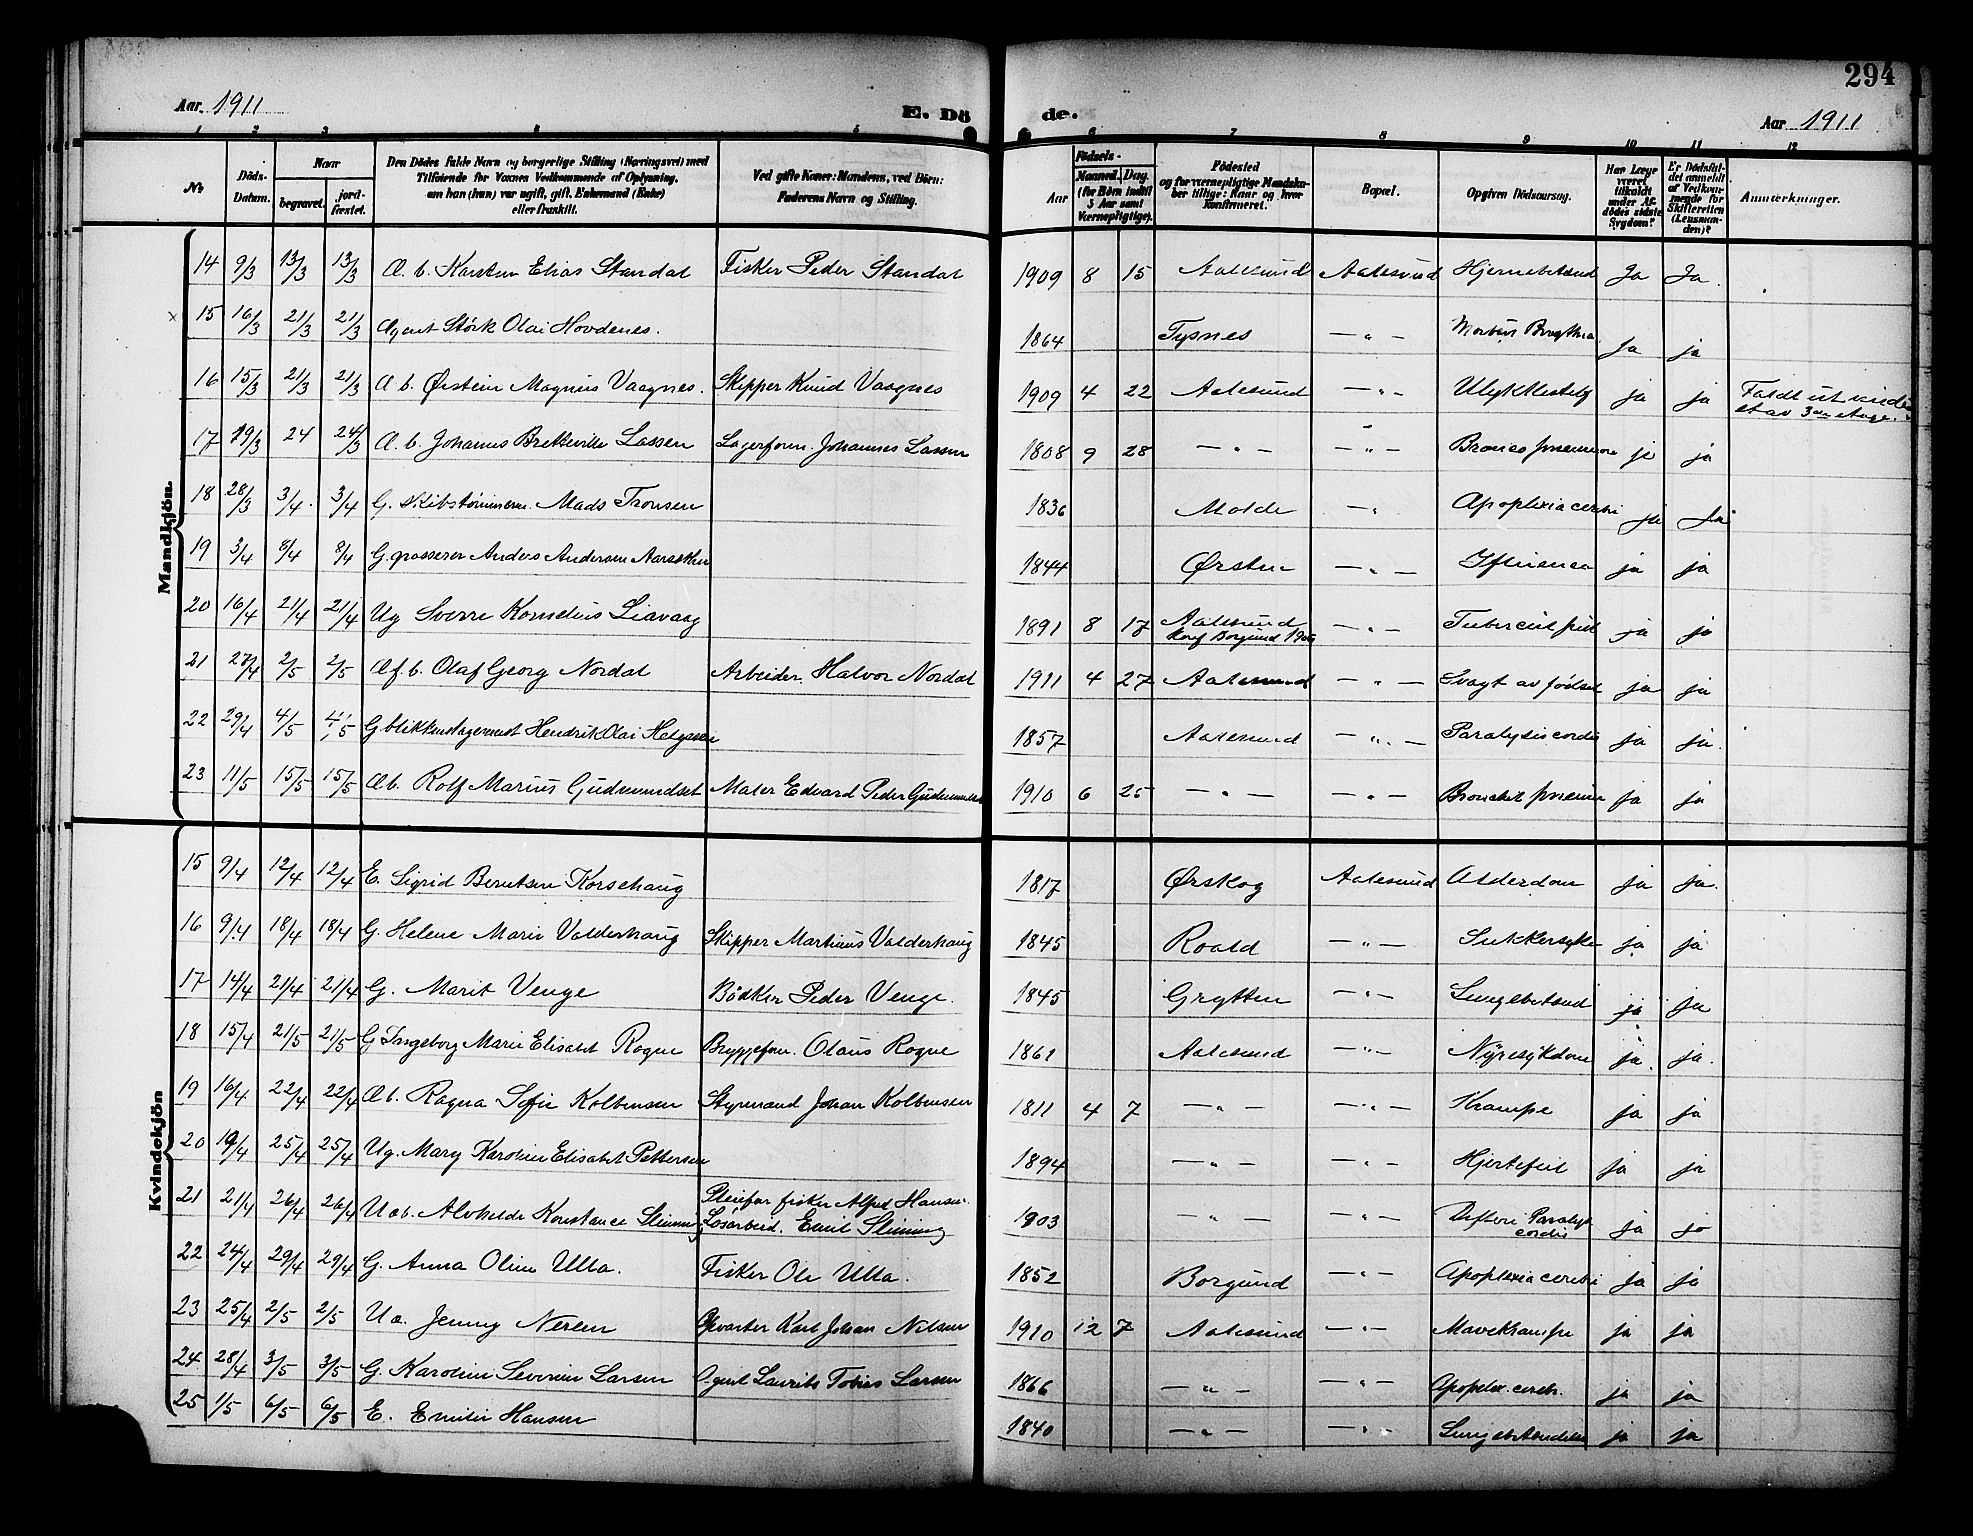 294
Aar 1911
E. Dö de.
Aar 1911
1 2 3 4 5 6 7 8 9 10 11 12
№
Döds-Datum.
Naar
begravet.
jord-fæstet.
Den Dödes fulde Navn og borgerlige Stilling (Næringsvei) med
Tilföiende for Voxnes Vedkommende af Oplysning,
om han (hun) var ugift, gift, Enkemand (Enke)
eller fraskilt.
Ved gifte Koner: Mandens, ved Börn:
Faderens Navn og Stilling.
Födsels-
Aar
Maaned. Dag.
(for Börn indtil
3 Aar samt
Værnepligtige).
Födested
og for værnepligtige Mandska-
ber tillige: Naar og hvor
konfirmeret.
Bopæl.
Opgiven Dödsaarsag.
Har Læge
været
tilkaldt
under Af-
dödes sidste
Sygdom?
Er Dödsfal-
det anmeldt
af Vedkom-
mende for
Skifteretten
(Lensman-
den)?
Anmærkninger.
Mandkjön.
14 9/3 13/3 13/3 Æ. b. Karsten Elias Standal Fisker Peder Standal 1909 8 15 Aalesund Aalesund Hjernebetænd Ja Ja.
15 16/3 21/3 21/3 Agent Størk Olai Hovdenes. 1864 Tysnes — „ — Morbus Ja ja
16 15/3 21/3 21/3 Æ b. Øistein Magnus Vaagnes. Skipper Knud Vaagnes 1909 4 22 Aalesund — „ — ja ja Faldt ut
et av 3die etage.
17 19/3 24 24/3 Æ. b. Johannes Bretteville Lassen Lagerform. Johannes Lassen 1808 9 28 — „ — — „ — Bronco pneumoni ja ja
18 28/3 3/4 3/4 G. Skibstømmerm. Mads Tronsen 1836 Molde — „ Apoplexia cerebri ja ja
19 3/4 8/4 8/4 G. grosserer Anders Andersen Aarsæther 1844 Ørsten — „ — Ifluensa ja ja
20 16/4 21/4 21/4 Ug Sverre Kornelius Liavaag 1891 8 17 Aalesund
Konf Borgund 1906 — „ — Tubercul pul ja ja
21 27/4 2/5 2/5 Æf. b. Olaf Georg Nordal Arbeider Halvor Nordal 1911 4 27 Aalesund — „ — Svagt av fødsel ja ja
22 29/4 4/5 4/5 G blikkenslagermest Hendrik Olai Helgesen 1857 Aalesund — „ — Paralysis cordis ja ja.
23 11/5 15/5 15/5 Æb. Rolf Marius Gudmundset Maler Edvard Peder Gudmundset 1910 6 25 — „ — — „ — Bronchit pneum ja ja
Kvindekjön
15 9/4 12/4 12/4 E. Sigrid Berntsen Korsehaug 1817 Ørskog Aalesund Alderdom ja ja.
16 9/4 18/4 18/4 G. Helene Marie Valderhaug Skipper Martinus Valderhaug 1845 Roald — „ — Sukkersyke ja ja
17 14/4 21/4 21/4 G. Marit Venge Bødker Peder Venge. 1845 Grytten — „ — Lungebetænd ja ja
18 15/4 21/5 21/5 G Ingeborg Marie Elisabet Rogne Bryggeform. Olaus Rogne 1861 Aalesund — „ — Nyresykdom ja ja.
19 16/4 22/4 22/4 Æb. Ragna Sofie Kolbensen Styrmand Johan Kolbensen 1811 4 7 — „ — — „ — Krampe ja ja
20 19/4 25/4 25/4 Ug. Mary Karoline Elisabet Pettersen 1894 — „ — — „ — Hjertefeil ja ja
21 21/4 26/4 26/4 Uæb. Alvhilde Konstance Slinning Pleiefar fisker Alfred Hansen.
Løsarbeid. Emil Slinning 1903 — „ — — „ — Difteri Paralys
cordis ja ja
22 24/4 29/4 29/4 G. Anna Oline Ulla. Fisker Ole Ulla. 1852 Borgund — „ — Apoplexia cerebri ja ja
23 25/4 2/5 2/5 U æ. Jenny Neren Opvarter Karl Johan Nilsen 1910 12 7 Aalesund — „ — Mavekrampe ja ja
24 28/4 3/5 3/5 G. Karoline Severine Larsen Agent Laurits Tobias Larsen 1866 — „ — — „ — Apoplex. cerebr. ja ja
25 1/5 6/5 6/5 E. Emilie Hansen 1840 — „ — — „ — ja ja